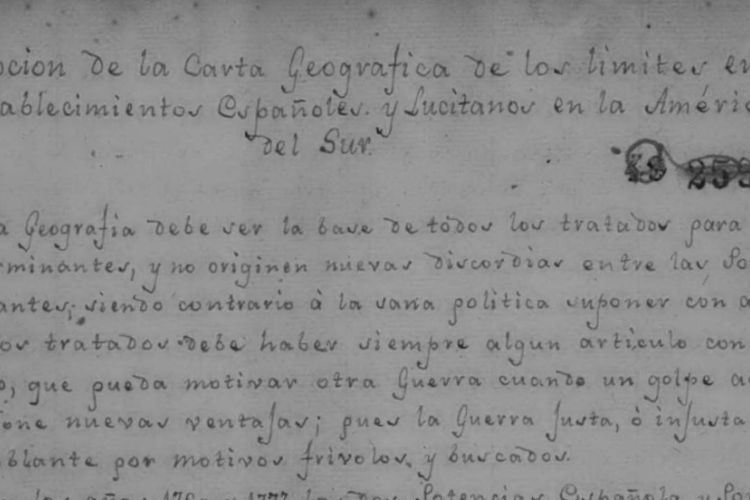 ocion de la Carta Geografica de los limites en
ablecimientos Españoles. y Lucitanos en la Améric
del Sur.
18 253
a Geografia debe ser la base de todos los tratados para
rminantes, y no originen nuevas discordias entre las Po
antes; siendo contrario à la sana politica suponer con a
os tratados debe haber siempre algun articulo con
o, que pueda motivar otra Guerra cuando un golpe a
one nuevas ventajas; pues la Guerra justa, ó injusta
blante por motivos frivolos, y buscados.
los años y 1777 las dos Potencias Española